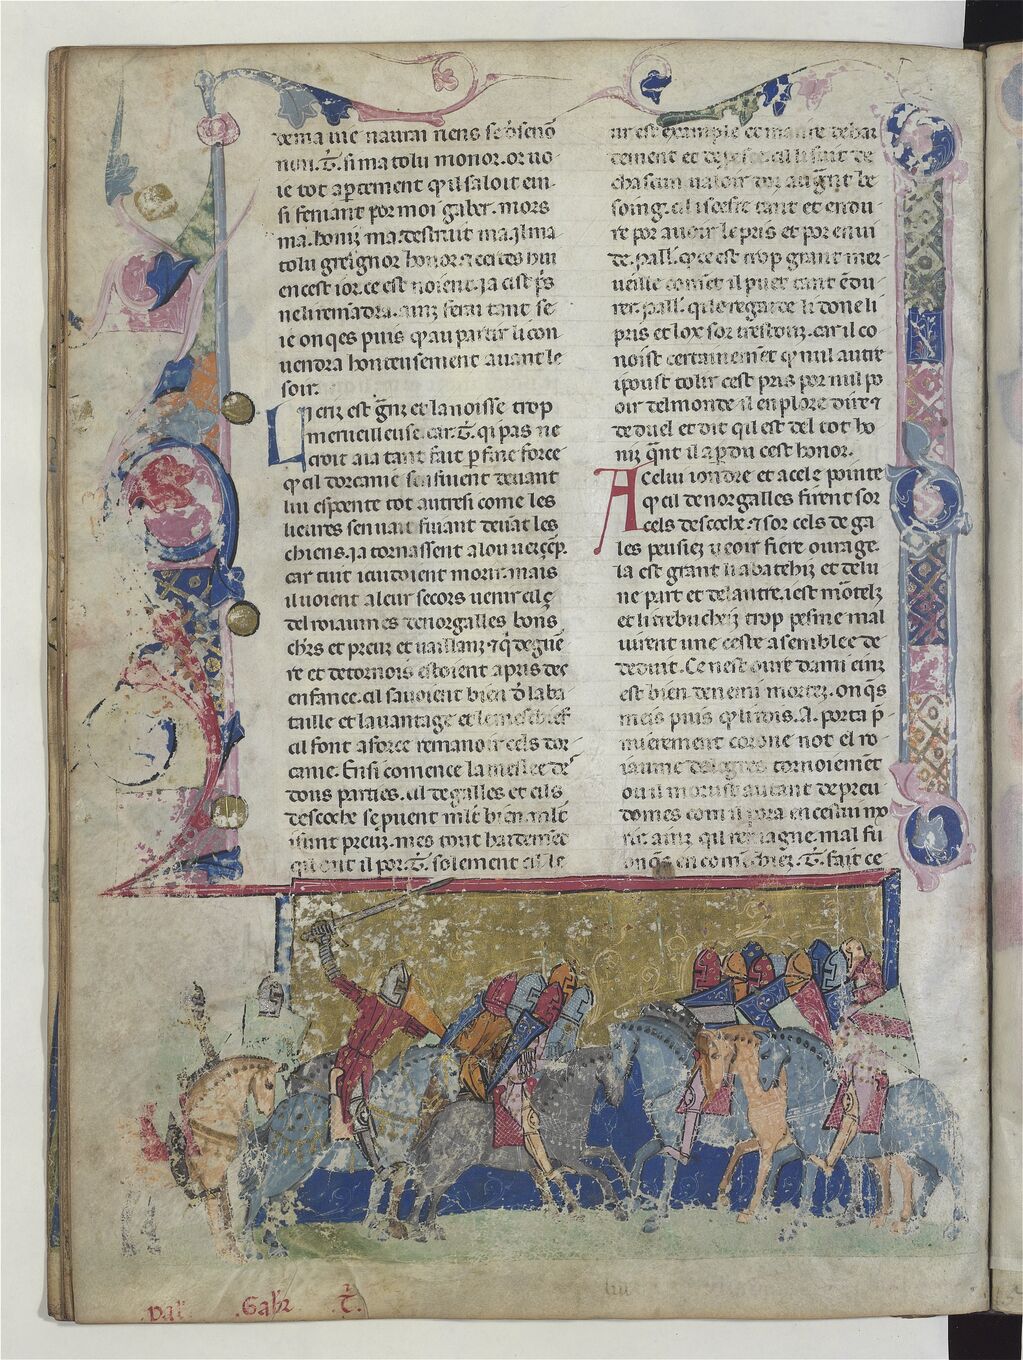 de ma uie nauin riens se d'seno
nun .T. si ma tolu monor. or uo
ie tot ap̱tement q'il saloit en
si feniant por moi gaber. mors
ma. honiz ma. destruit ma. il ma
tolu greignor honor
en cest ior. ce est noient. ia cist
ne li remaīdra. ainz ferai tant se
ie onqes puis q'au partir li con
uendra honteusement auant le
soir.
est g̃nz et la noisse trop
merueilleuse. car .T. qi pas ne
croit a ia tant fait p̱ fine force
q' cil dorcanie sen fuient deuant
lui espoente tot autresi come les
lieures sen uait fuiant deuāt les
chiens. ia tornassent a lou
car tuit icudoient morir. mais
il uoient a leur secors uenir
del roiaumes de norgalles bons
ch'rs et preuz et uaillanz q' de gue
re et de tornois estoient apris des
enfance. cil sauoient bien d' la ba
taille et lauantage et le meschief
cil font a force remanoir cels dor
canie. Ensi comence la mellee de
dous parties. cil de galles et cil
descoce se puent mlt bien
preuz. mes tout hardemēt
qi ont il por .T. solement cil le
ur est example et maniere de har
dement et de
chascun ualoir au g̃nt be
soing. cil
re por auoir le pris et por enui
de. pall. q' ce est trop grant mer
ueille comēt il puet tant ēdu
rer. pall. qi le regarde li done li
pris et lox sor trestouz. car il co
noist certainemēt q' nul autre
i poust tolir cest pris por nul po
oir del monde il en plore dire
de duel et dit qil est del tot ho
niz q̃nt il a p̱du cest honor.
A celui iondre et a cele pointe
q' cil de norgalles firent sor
cels descoche sor cels de ga
les peusiez ueoir fiere ourage.
la est grant li abateiz et de lu
ne part et de lautre. i est mōtelz
et li trebucheiz trop pesme mal
uirent une ceste asemblee de
deduit. Ce nest ouure dami ainz
est bien denemi mortez. onq's
meis puis q' li rois .A. porta p'
mierement corone not el ro
iaume de logres tornoiemēt
ou il morust autant de preu
domes com il fera en cestui
ainz qil remaigne. mal fu
onq's encomēchiez .T. fait ce
.Pal' .Gab'r .T.